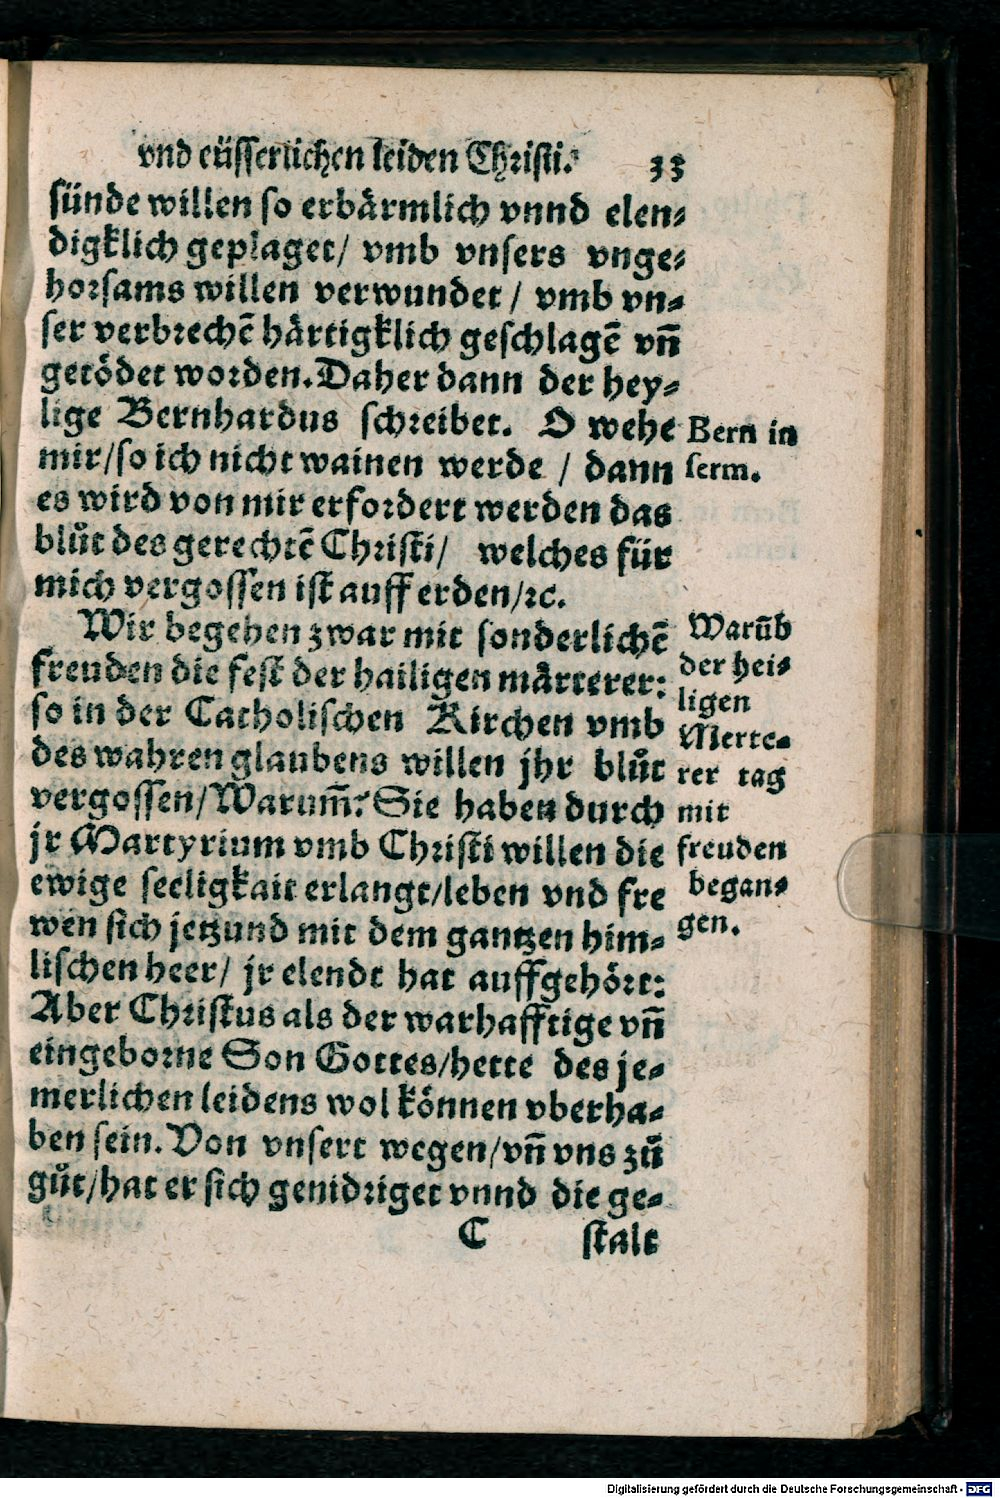 vnd eüsserlichen leiden Christi. 33
sünde willen so erbärmlich vnnd elen⸗
digklich geplaget/ vmb vnsers vnge⸗
horsams willen verwundet / vmb vn⸗
ser verbrechẽ härtigklich geschlagẽ vñ
getödet worden. Daher dann der hey⸗
lige Bernhardus schreibet. O wehe
mir/so ich nicht wainen werde / dann
es wird von mir erfordert werden das
blůt des gerechtẽ Christi/ welches für
mich vergossen ist auff erden/ꝛc.
Bern in
serm.
Wir begehen zwar mit sonderlichẽ
freuden die fest der hailigen märterer:
so in der Catholischen Kirchen vmb
des wahren glaubens willen jhr blůt
vergossen/Warum̃? Sie haben durch
jr Martyrium vmb Christi willen die
ewige seeligkait erlangt/leben vnd fre
wen sich jetzund mit dem gantzen him⸗
lischen heer/ jr elendt hat auffgehört:
Aber Christus als der warhafftige vñ
eingeborne Son Gottes/hette des je⸗
merlichen leidens wol können vberha⸗
ben sein. Von vnsert wegen/vñ vns zů
gůt/hat er sich genidriget vnnd die ge⸗
Warũb
der hei⸗
ligen
Merte⸗
rer tag
mit
freuden
began⸗
gen.
C stalt
Digitalisierung gefördert durch die Deutsche Forschungsgemeinschaft - DFG